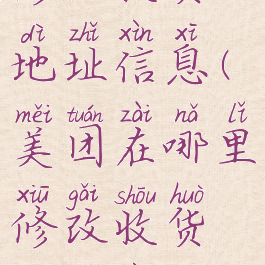 dì zhǐ xìn xī
地址信息(
měi tuán zài nǎ lǐ
美团在哪里
xiū gǎi shōu huò
修改收货